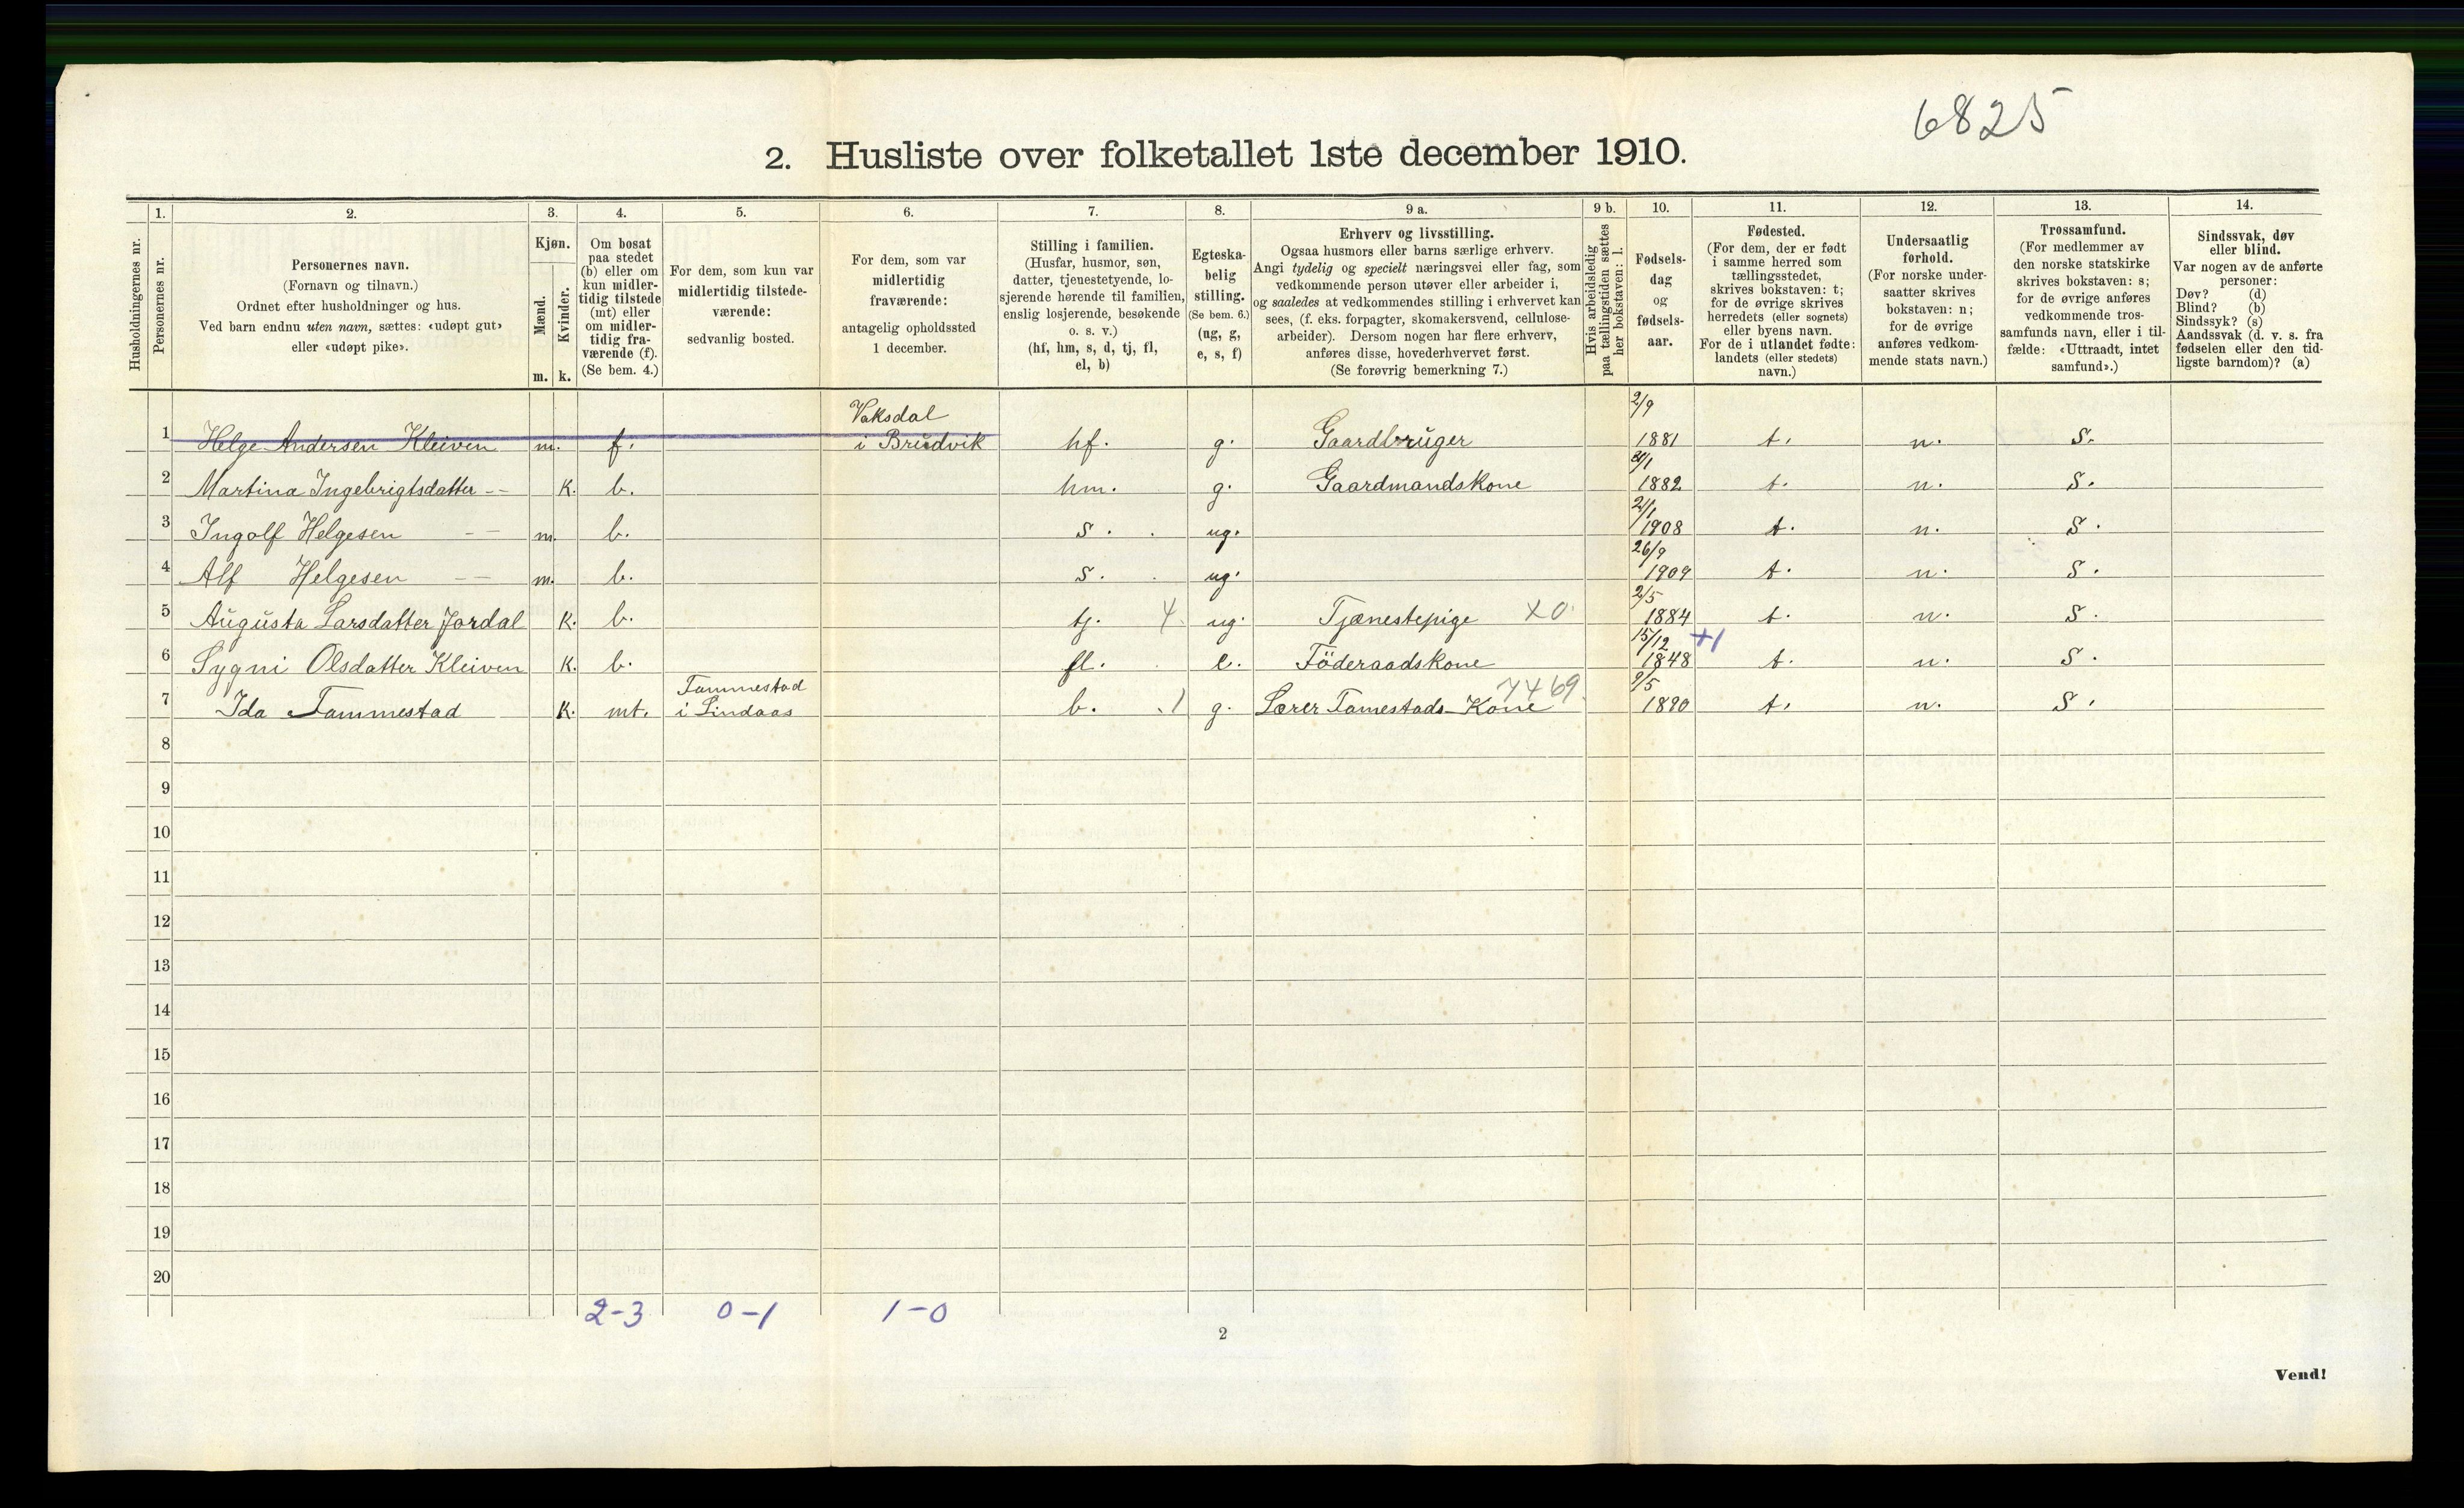 6825
2. Husliste over folketallet 1ste december 1910.
1. 2. 3. 4. 5. 6. 7. 8. 9 a. 9 b. 10. 11. 12. 13. 14.
Husholdningernes nr.
Personernes nr.
Personernes navn.
(Fornavn og tilnavn.)
Ordnet efter husholdninger og hus.
Ved barn endnu uten navn, sættes: «udøpt gut»
eller «udøpt pike».
Kjøn.
Mænd.
Kvinder.
m. k.
Om bosat
paa stedet
(b) eller om
kun midler-
tidig tilstede
(mt) eller
om midler-
tidig fra-
værende (f).
(Se bem. 4.)
For dem, som kun var
midlertidig tilstede-
værende:
sedvanlig bosted.
For dem, som var
midlertidig
fraværende:
antagelig opholdssted
1 december.
Stilling i familien.
(Husfar, husmor, søn,
datter, tjenestetyende, lo-
sjerende hørende til familien,
enslig losjerende, besøkende
o. s. v.)
(hf, hm, s, d, tj, fl,
el, b)
Egteska-
belig
stilling.
(Se bem. 6.)
(ug, g,
e, s, f)
Erhverv og livsstilling.
Ogsaa husmors eller barns særlige erhverv.
Angi tydelig og specielt næringsvei eller fag, som
vedkommende person utøver eller arbeider i,
og saaledes at vedkommendes stilling i erhvervet kan
sees, (f. eks. forpagter, skomakersvend, cellulose-
arbeider). Dersom nogen har flere erhverv,
anføres disse, hovederhvervet først.
(Se forøvrig bemerkning 7.)
Hvis arbeidsledig
paa tællingstiden sættes
her bokstaven: l.
Fødsels-
dag
og
fødsels-
aar.
Fødested.
(For dem, der er født
i samme herred som
tællingsstedet,
skrives bokstaven: t;
for de øvrige skrives
herredets (eller sognets)
eller byens navn.
For de i utlandet fødte:
landets (eller stedets)
navn.)
Undersaatlig
forhold.
(For norske under-
saatter skrives
bokstaven: n;
for de øvrige
anføres vedkom-
mende stats navn.)
Trossamfund.
(For medlemmer av
den norske statskirke
skrives bokstaven: s;
for de øvrige anføres
vedkommende tros-
samfunds navn, eller i til-
fælde: «Uttraadt, intet
samfund».)
Sindssvak, døv
eller blind.
Var nogen av de anførte
personer:
Døv? (d)
Blind? (b)
Sindssyk? (s)
Aandssvak (d. v. s. fra
fødselen eller den tid-
ligste barndom)? (a)
Vaksdal 2/9
1 Helge Andersen Kleiven m. f. i Brudvik hf. g. Gaardbruger 1881 t. n. S.
2 Martina Ingebrigtsdatter -- K. b. hm. g. Gaardmandskone 1882 t. n. S.
21/1
3 Ingolf Helgesen -- m. b. s. ug. 1908 t. n. S.
26/9
4 Alf Helgesen -- m. b. s. ug. 1909 t. n. S.
2/5
5 Augusta Larsdatter Jordal K. b. tj. 4 ug. Tjænestepige X0 1884 t. n. S.
15/12 +1
6 Sygni Olsdatter Kleiven K. b. fl. e. Föderaadskone 1848 t. n. S.
Tammestad 7469 9/5
7 Ida Tammestad K. mt. i Lindaas b. 1 g. Lærer Tamestads-Kone 1890 t. n. S.
8
9
10
11
12
13
14
15
16
17
18
19
20
2-3 0-1 1-0
2
Vend!